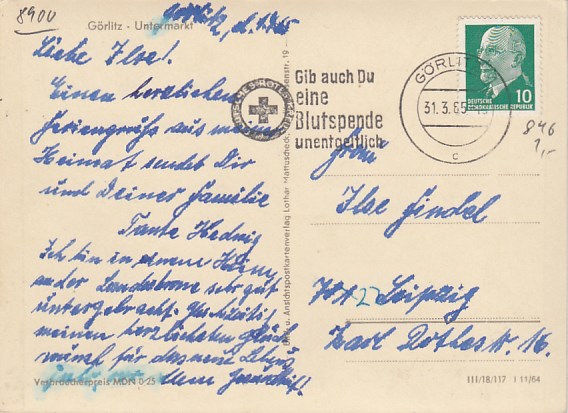 8900
Görlitz - Untermarkt
Görlitz, d.
Liebe Ilse!
Einen herzlichen
Feriengruß aus meiner
Heimat sendet Dir
und Deiner Familie
Tante Hedwig
Ich bin in einem Heim
an der Landeskrone sehr gut
untergebracht.
meinen herzlichsten Glück
wunsch für das neue Lebens
jahr, vor
Verbraucherpreis MDN 0.25
Bild u. Ansichtspostkartenverlag Lothar Mattuscheck
DEUTSCHES ROTES KREUZ
Gib auch Du
eine
Blutspende
unentgeltlich
GÖRLITZ
31.3.65
c
DEUTSCHE
DEMOKRATISCHE REPUBLIK
10
846
1,-
Frau
Ilse
27 Leipzig
Str. 16.
III/18/117 I 11/64